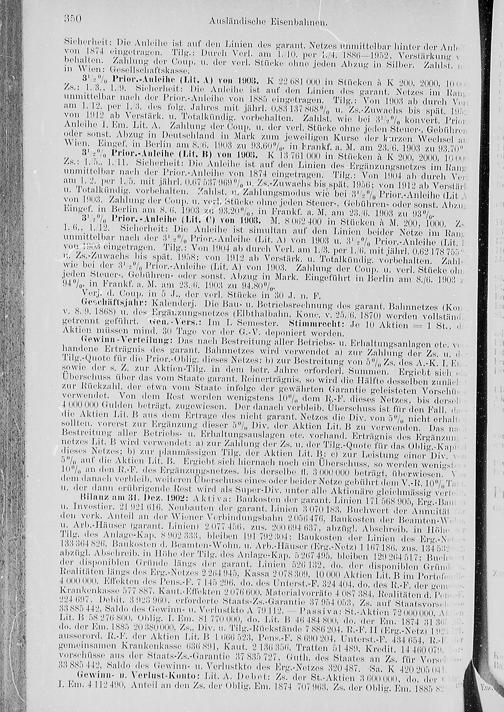 350 Ausländische Eisenbahnen.
Sicherheit: Die Anleihe ist auf den Linien des garant. Netzes unmittelbar hinter der Anle
von 1874 eingetragen. Tilg.: Durch Verl. am 1./10. per 1./4. 1886—1952. Verstärkung v
behalten. Zahlung der Coup. u. der verl. Stücke ohne jeden Abzug in Silber. Zahlst.
in Wien: Gesellschaftskasse.
3½% Prior.-Anleihe (Lit. A) von 1903. K 22 681 000 in Stücken à K 200, 2000, 10 00
Zs.: 1./3., 1./9. Sicherheit: Die Anleihe ist auf den Linien des garant. Netzes im Rang
unmittelbar nach der Prior.-Anleihe von 1885 eingetragen. Tilg.: Von 1903 ab durch Ver
am 1./12. per 1./3. des folg. Jahres mit jährl. 0.83 137 868% u. Zs.-Zuwachs bis spät. 195
von 1912 ab Verstärk. u. Totalkündig. vorbehalten. Zahlst. wie bei 3½% konvert. Prior
Anleihe I. Em. Lit. A. Zahlung der Coup. u. der verl. Stücke ohne jeden Steuer-, Gebühren
oder sonst. Abzug in Deutschland in Mark zum jeweiligen Kurse der kurzen Wechsel a
Wien. Eingef. in Berlin am 8./6. 1903 zu 93.60%, in Frankf. a. M. am 23./6. 1903 zu 93.70%
3½% Prior.-Anleihe (Lit. B) von 1903. K 13 761 000 in Stücken à K 200, 2000, 10 00
Zs.: 1./5., 1./11. Sicherheit: Die Anleihe ist auf den Linien des Ergänzungsnetzes im Rang
unmittelbar nach der Prior.-Anleihe von 1874 eingetragen. Tilg.: Von 1904 ab durch Ver
am 1./2. per 1./5. mit jährl. 0.67 537 969% u. Zs.-Zuwachs bis spät. 1956; von 1912 ab Verstärk
u. Totalkündig. vorbehalten. Zahlst. u. Zahlungsmodus wie bei 3½% Prior.-Anleihe (Lit. A
von 1903. Zahlung der Coup. u. verl. Stücke ohne jeden Steuer-, Gebühren- oder sonst. Abzu
Eingef. in Berlin am 8./6. 1903 zu 93.20%, in Frankf. a. M. am 23./6. 1903 zu 93%.
3½% Prior.-Anleihe (Lit. C) von 1903. M. 8 062 400 in Stücken à M. 200, 1000. Z-
1./6., 1./12. Sicherheit: Die Anleihe ist simultan auf den Linien beider Netze im Rang
unmittelbar nach der 3½% Prior.-Anleihe (Lit. A) von 1903 u. 3½% Prior.-Anleihe (Lit. B
von 1903 eingetragen. Tilg.: Von 1904 ab durch Verl. am 1./3. per 1./6. mit jährl. 0.62 178 755
u. Zs.-Zuwachs bis spät. 1958; von 1912 ab Verstärk. u. Totalkündig. vorbehalten. Zahl-
wie bei der 3½% Prior.-Anleihe (Lit. A) von 1903. Zahlung der Coup. u. verl. Stücke oh
jeden Steuer-, Gebühren- oder sonst. Abzug in Mark. Eingeführt in Berlin am 8./6. 1903
94%, in Frankf. a. M. am 23./6. 1903 zu 94.80%.
Verj. d. Coup. in 5 J., der verl. Stücke in 30 J. n. F.
Geschäftsjahr: Kalenderj. Die Bau- u. Betriebsrechnung des garant. Bahnnetzes (Kon
v. 8./9. 1868) u. des Ergänzungsnetzes (Elbthalbahn, Konc. v. 25./6. 1870) werden vollständ
getrennt geführt. Gen.-Vers.: Im I. Semester. Stimmrecht: Je 10 Aktien = 1 St.,
Aktien müssen mind. 30 Tage vor der G.-V. deponiert werden.
Gewinn-Verteilung: Das nach Bestreitung aller Betriebs- u. Erhaltungsanlagen etc. v
handene Erträgnis des garant. Bahnnetzes wird verwendet a) zur Zahlung der Zs. u. d
Tilg.-Quote für die Prior.-Oblig. dieses Netzes; b) zur Bestreitung von 5% Zs. des A.-K. I. E
sowie der s. Z. zur Aktien-Tilg. in dem betr. Jahre erforderl. Summen. Ergiebt sich e
Überschuss über das vom Staate garant. Reinerträgnis, so wird die Hälfte desselben zunäc
zur Rückzahl. der etwa vom Staate infolge der gewährten Garantie geleisteten Vorschü
verwendet. Von dem Rest werden wenigstens 10% dem R.-F. dieses Netzes, bis dersel
4 000 000 Gulden beträgt, zugewiesen. Der danach verbleib. Überschuss ist für den Fall, da
die Aktien Lit. B aus dem Ertrage des nicht garant. Netzes die Div. von 5% nicht erhalt
sollten, vorerst zur Ergänzung dieser 5% Div. der Aktien Lit. B zu verwenden. Das na
Bestreitung aller Betriebs- u. Erhaltungsauslagen etc. vorhand. Erträgnis des Ergänzun
netzes Lit. B wird verwendet: a) zur Zahlung der Zs. u. der Tilg.-Quote für das Oblig.-Kapi
dieses Netzes; b) zur planmässigen Tilg. der Aktien Lit. B; c) zur Leistung einer Div. v
5% auf die Aktien Lit. B. Ergiebt sich hiernach noch ein Überschuss, so werden wenigst
10% an den R.-F. des Ergänzungsnetzes, bis derselbe fl. 3 000 000 beträgt, überwiesen. V
dem danach verbleib. weiteren Überschuss eines oder beider Netze gebührt dem V.-R. 10% Ta
u. der dann erübrigende Rest wird als Super-Div. unter alle Aktionäre gleichmässig verte
Bilanz am 31. Dez. 1902: Aktiva: Baukosten der garant. Linien 171 568 905, Erg.-Bau
u. Investier. 21 921 616, Neubauten der garant. Linien 3 070 183, Buchwert der Annuität
den verk. Anteil an der Wiener Verbindungsbahn 2 056 476, Baukosten der Beamten-W
u. Arb.-Häuser (garant. Linien) 2 077 456, zus. 200 694 637, abzügl. Abschreib. in Höhe
Tilg. des Anlage-Kap. 8 902 333, bleiben 191 792 304; Baukosten der Linien des Erg.-Ne
133 364 826, Baukosten d. Beamten-Wohn. u. Arb.-Häuser (Erg.-Netz) 1 167 186, zus. 134 532
abzügl. Abschreib. in Höhe der Tilg. des Anlage-Kap. 5 267 495, bleiben 129 264 517; Buch
der disponiblen Gründe längs der garant. Linien 526 132, do. der disponiblen Gründ
Realitäten längs des Erg.-Netzes 2 264 945, Kassa 2 078 309, 10 000 Aktien Lit. B im Portef
4 000 000, Effekten des Pens.-F. 7 145 296, do. des Unterst.-F. 324 404, do. des R.-F. der gem
Krankenkasse 577 887, Kaut.-Effekten 2 076 600, Materialvorräte 4 087 384, Realitäten d. Pen
224 697, Debit. 3 923 960, erforderte Staats-Zs.-Garantie 37 954 053, Zs. auf Staatsvorsch
33 885 442, Saldo des Gewinn- u. Verlustkto A 79 112. — Passiva: St.-Aktien 72 000 000, A
Lit. B 58 276 800, Oblig. I. Em. 81 770 000, do. Lit. B 46 484 800, do. der Em. 1874 31 36
do. der Em. 1885 20 380 000, Zs., Div.- u. Tilg.-Rückstände 7 886 204, R.-F. II (Erg.-Netz) 1 92
ausserord. R.-F. der Aktien Lit. B 1 666 523, Pens.-F. 8 690 204, Unterst.-F. 434 654, R.-F.
gemeinsamen Krankenkasse 636 891, Kaut. 2 136 356, Tratten 51 489, Kredit. 14 460 079,
vorschüsse aus der Staats-Zs.-Garantie 37 835 727, Guth. des Staates an Zs. für Vorsc
33 885 442, Saldo des Gewinn- u. Verlustkto des Erg.-Netzes 320 487. Sa. K 420 205
Gewinn- u. Verlust-Konto: Lit. A. Debet: Zs. der St.-Aktien 3 600 000, do. der
I. Em. 4 112 490, Anteil an den Zs. der Oblig. Em. 1874 707 963, Zs. der Oblig. Em. 1885 8